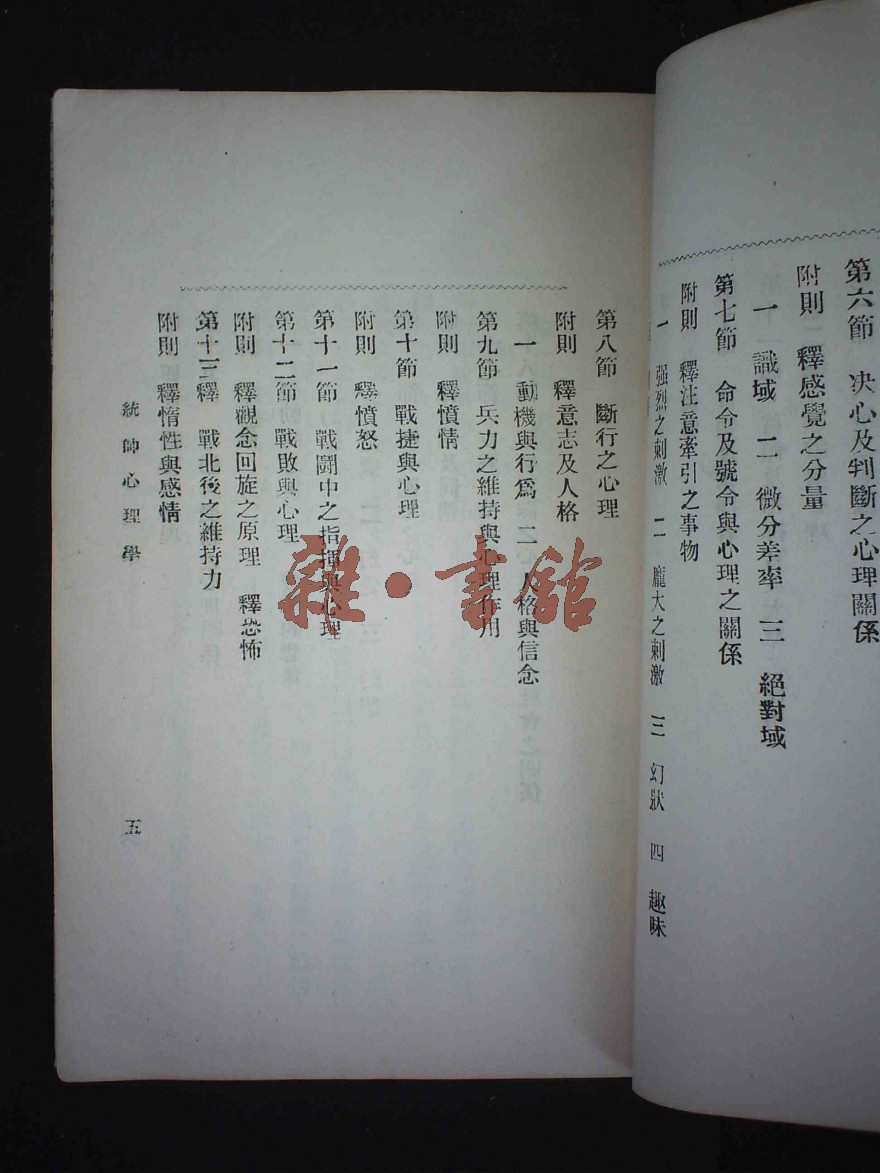 第六節　決心及判斷之心理關係
附則　釋感覺之分量
一　識域　二　微分差率　三　絕對域
第七節　命令及號令與心理之關係
附則　釋注意牽引之事物
一　强烈之刺激　二　龐大之刺激　三　幻狀　四　趣味
第八節　斷行之心理
附則　釋意志及人格
一　動機與行爲　二　人格與信念
第九節　兵力之維持與心理作用
附則　釋憤情
第十節　戰捷與心理
附則　釋憤怒
第十一節　戰鬪中之指揮與心理
第十二節　戰敗與心理
附則　釋觀念回旋之原理　釋恐怖
第十三釋　戰北後之維持力
附則　釋惰性與感情
統帥心理學
五
雜·書館